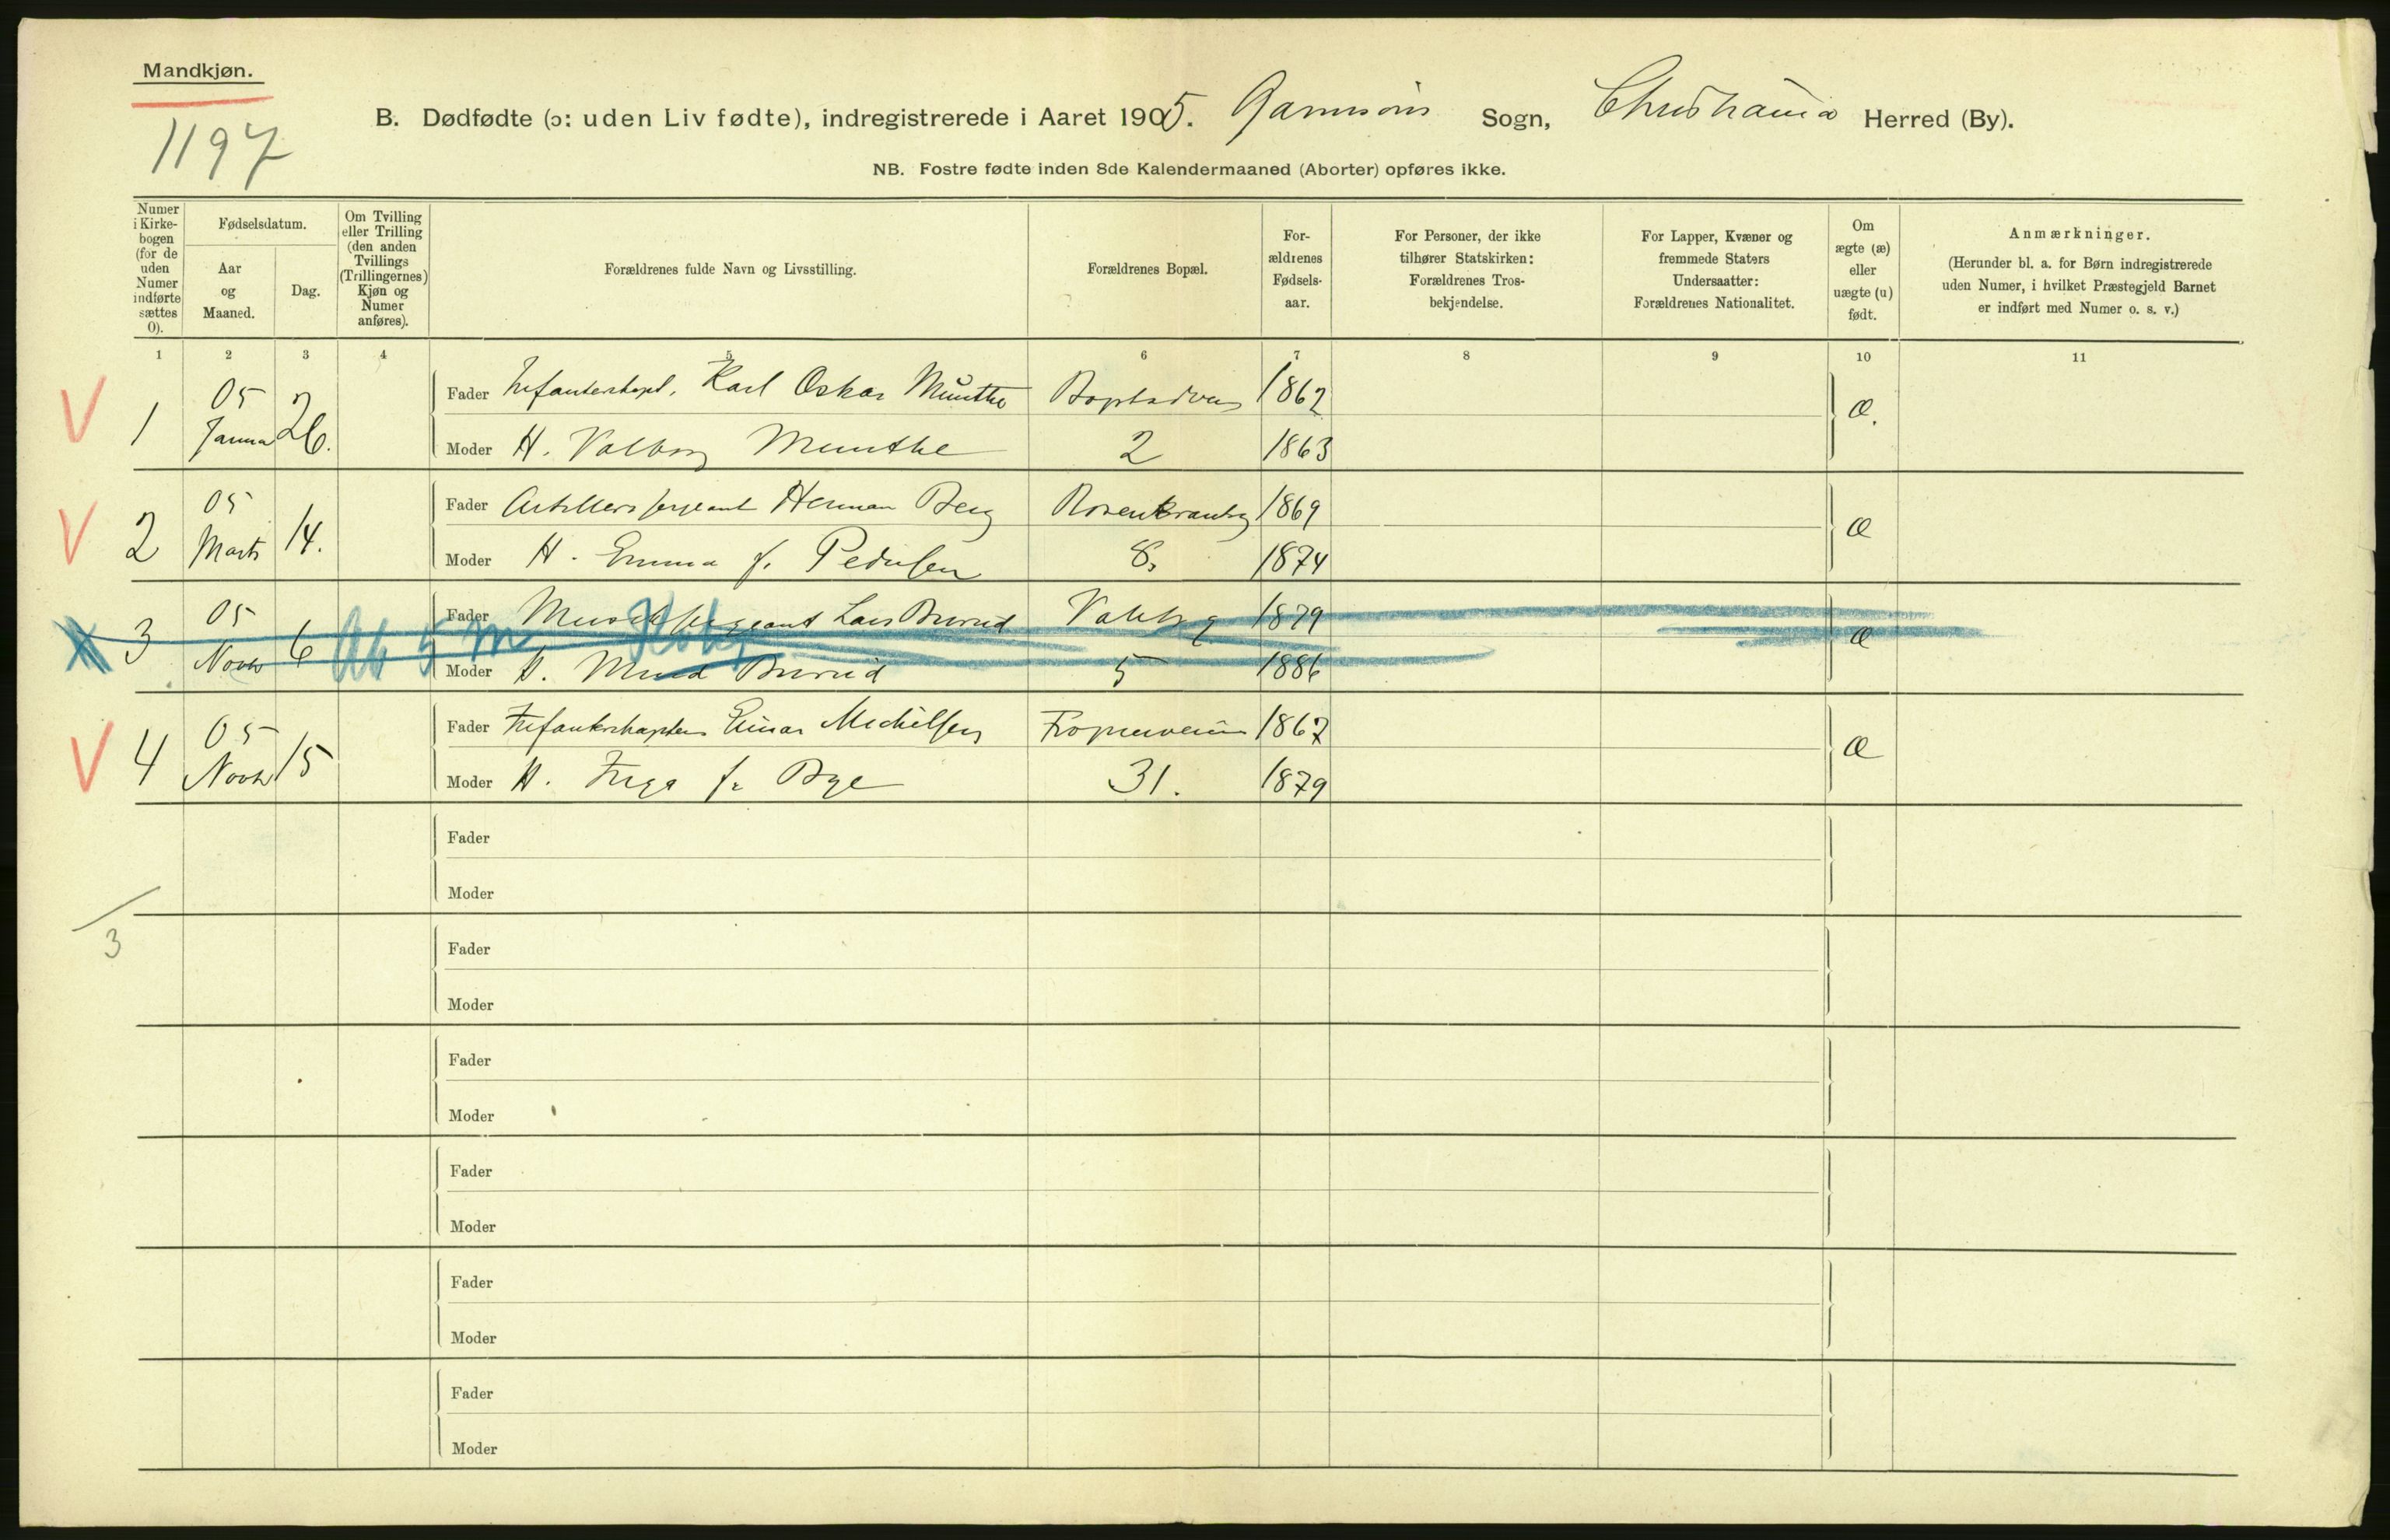 Mandkjøn.
1197
B. Dødfødte (ɔ: uden Liv fødte), indregistrerede i Aaret 1905. Garnisons Sogn, Christiania Herred (By).
NB. Fostre fødte inden 8de Kalendermaaned (Aborter) opføres ikke.
Numer i Kirkebogen (for de uden Numer indførte sættes 0).
Fødselsdatum.
Aar og Maaned.
Dag.
Om Tvilling eller Trilling (den anden Tvillings (Trillingernes) Kjøn og Numer anføres).
Forældrenes fulde Navn og Livsstilling.
Forældrenes Bopæl.
Forældrenes Fødselsaar.
For Personer, der ikke tilhører Statskirken: Forældrenes Trosbekjendelse.
For Lapper, Kvæner og fremmede Staters Undersaatter: Forældrenes Nationalitet.
Om ægte (æ) eller uægte (u) født.
Anmærkninger.
(Herunder bl. a. for Børn indregistrerede uden Numer, i hvilket Præstegjeld Barnet er indført med Numer o. s. v.)
1 2 3 4 5 6 7 8 9 10 11
V 1 05 Janua 26. Fader Infanterikapt. Karl Oskar Munthe 1862 æ.
Moder H. Valborg Munthe 2 1863
V 2 05 Marts 14. Fader Artillerisergeant Herman Berg Rosenkrantzg 1869 æ
Moder H. Emma f. Pedersen 8. 1874
3 05 Novbr 6 Ab 5 m Fader Musiksergeant Lars Burud 1879 æ
Moder H. Burud 5 1886
V 4 05 Novbr 15 Fader Infanterikaptein Einar Michelsen Frognerveien 1867 æ
Moder H. Inga f. Bye 31. 1879
Fader
Moder
3
Fader
Moder
Fader
Moder
Fader
Moder
Fader
Moder
Fader
Moder